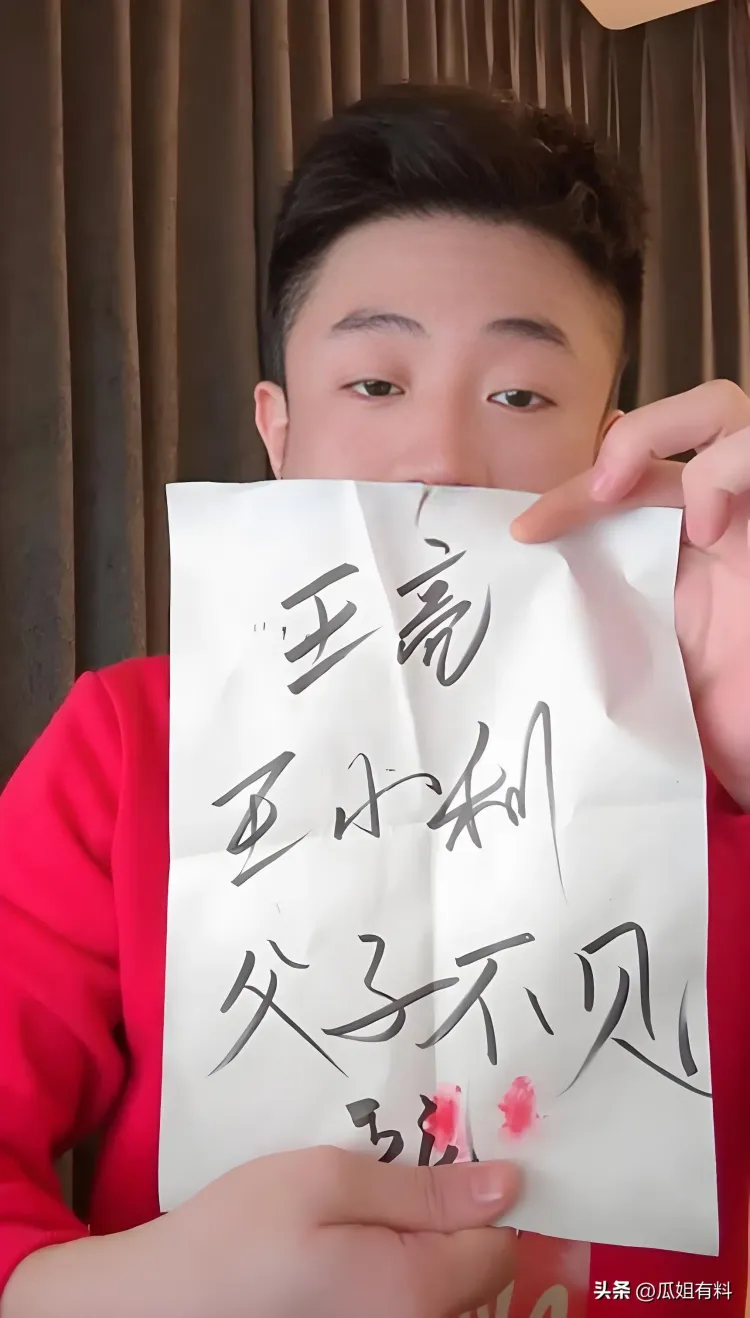 王亮
王小利
父子不见
头条 @瓜姐有料